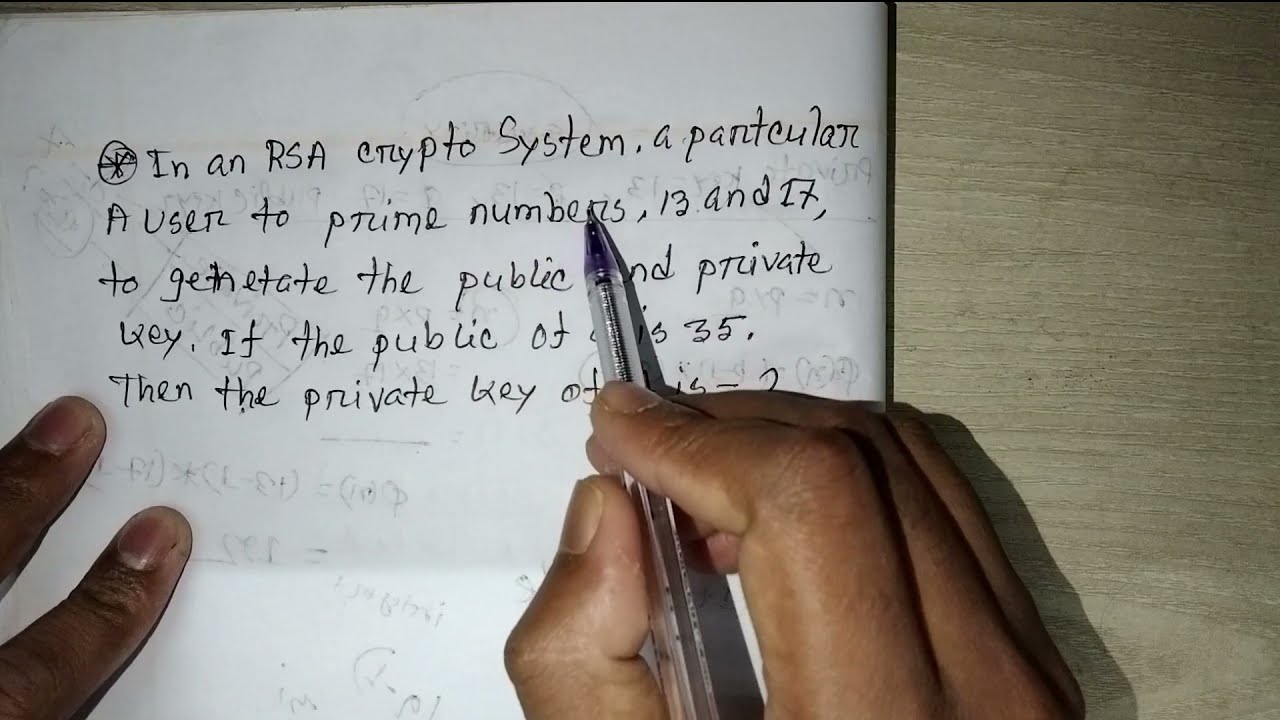 In an RSA crypto System, a partcular
A user to prime numbers, 13 and 17,
to genetate the public and private
key. If the public of is 35.
Then the private key of is - ?